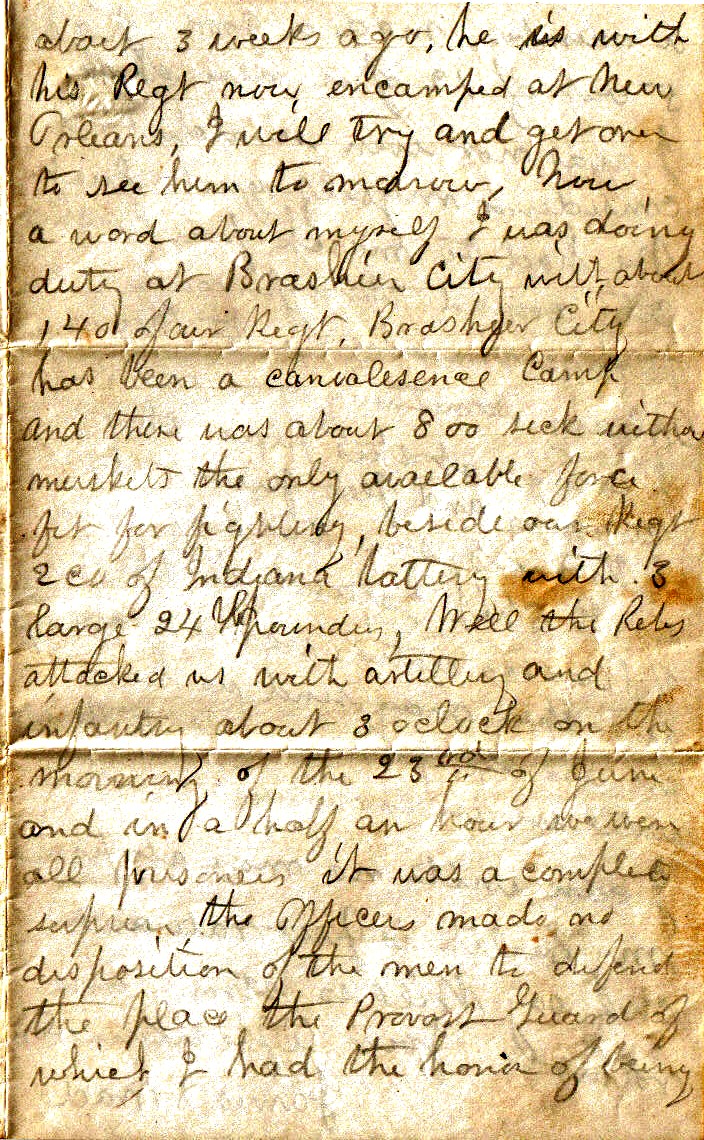 about 3 weeks ago, he is with
his Regt now encamped at New
Orleans, I will try and get over
to see him to morrow, Now
a word about myself I was doing
duty at Brashier City with about
140 of our Regt, Brashyer City
has been a canvalesence Camp
and there was about 800 sick
muskets the only available force
fit for fighting, beside our Regt
2 co of Indiana battery with 3
large 24 pounders, Well the Rebs
attacked us with artillery and
infantry about 3 oclock on the
morning of the 23 of June
and in a half an hour we were
all prisoners it was a complete
the Officers made no
disposition of the men to defend
the place the Provost Guard of
which I had the honor of being